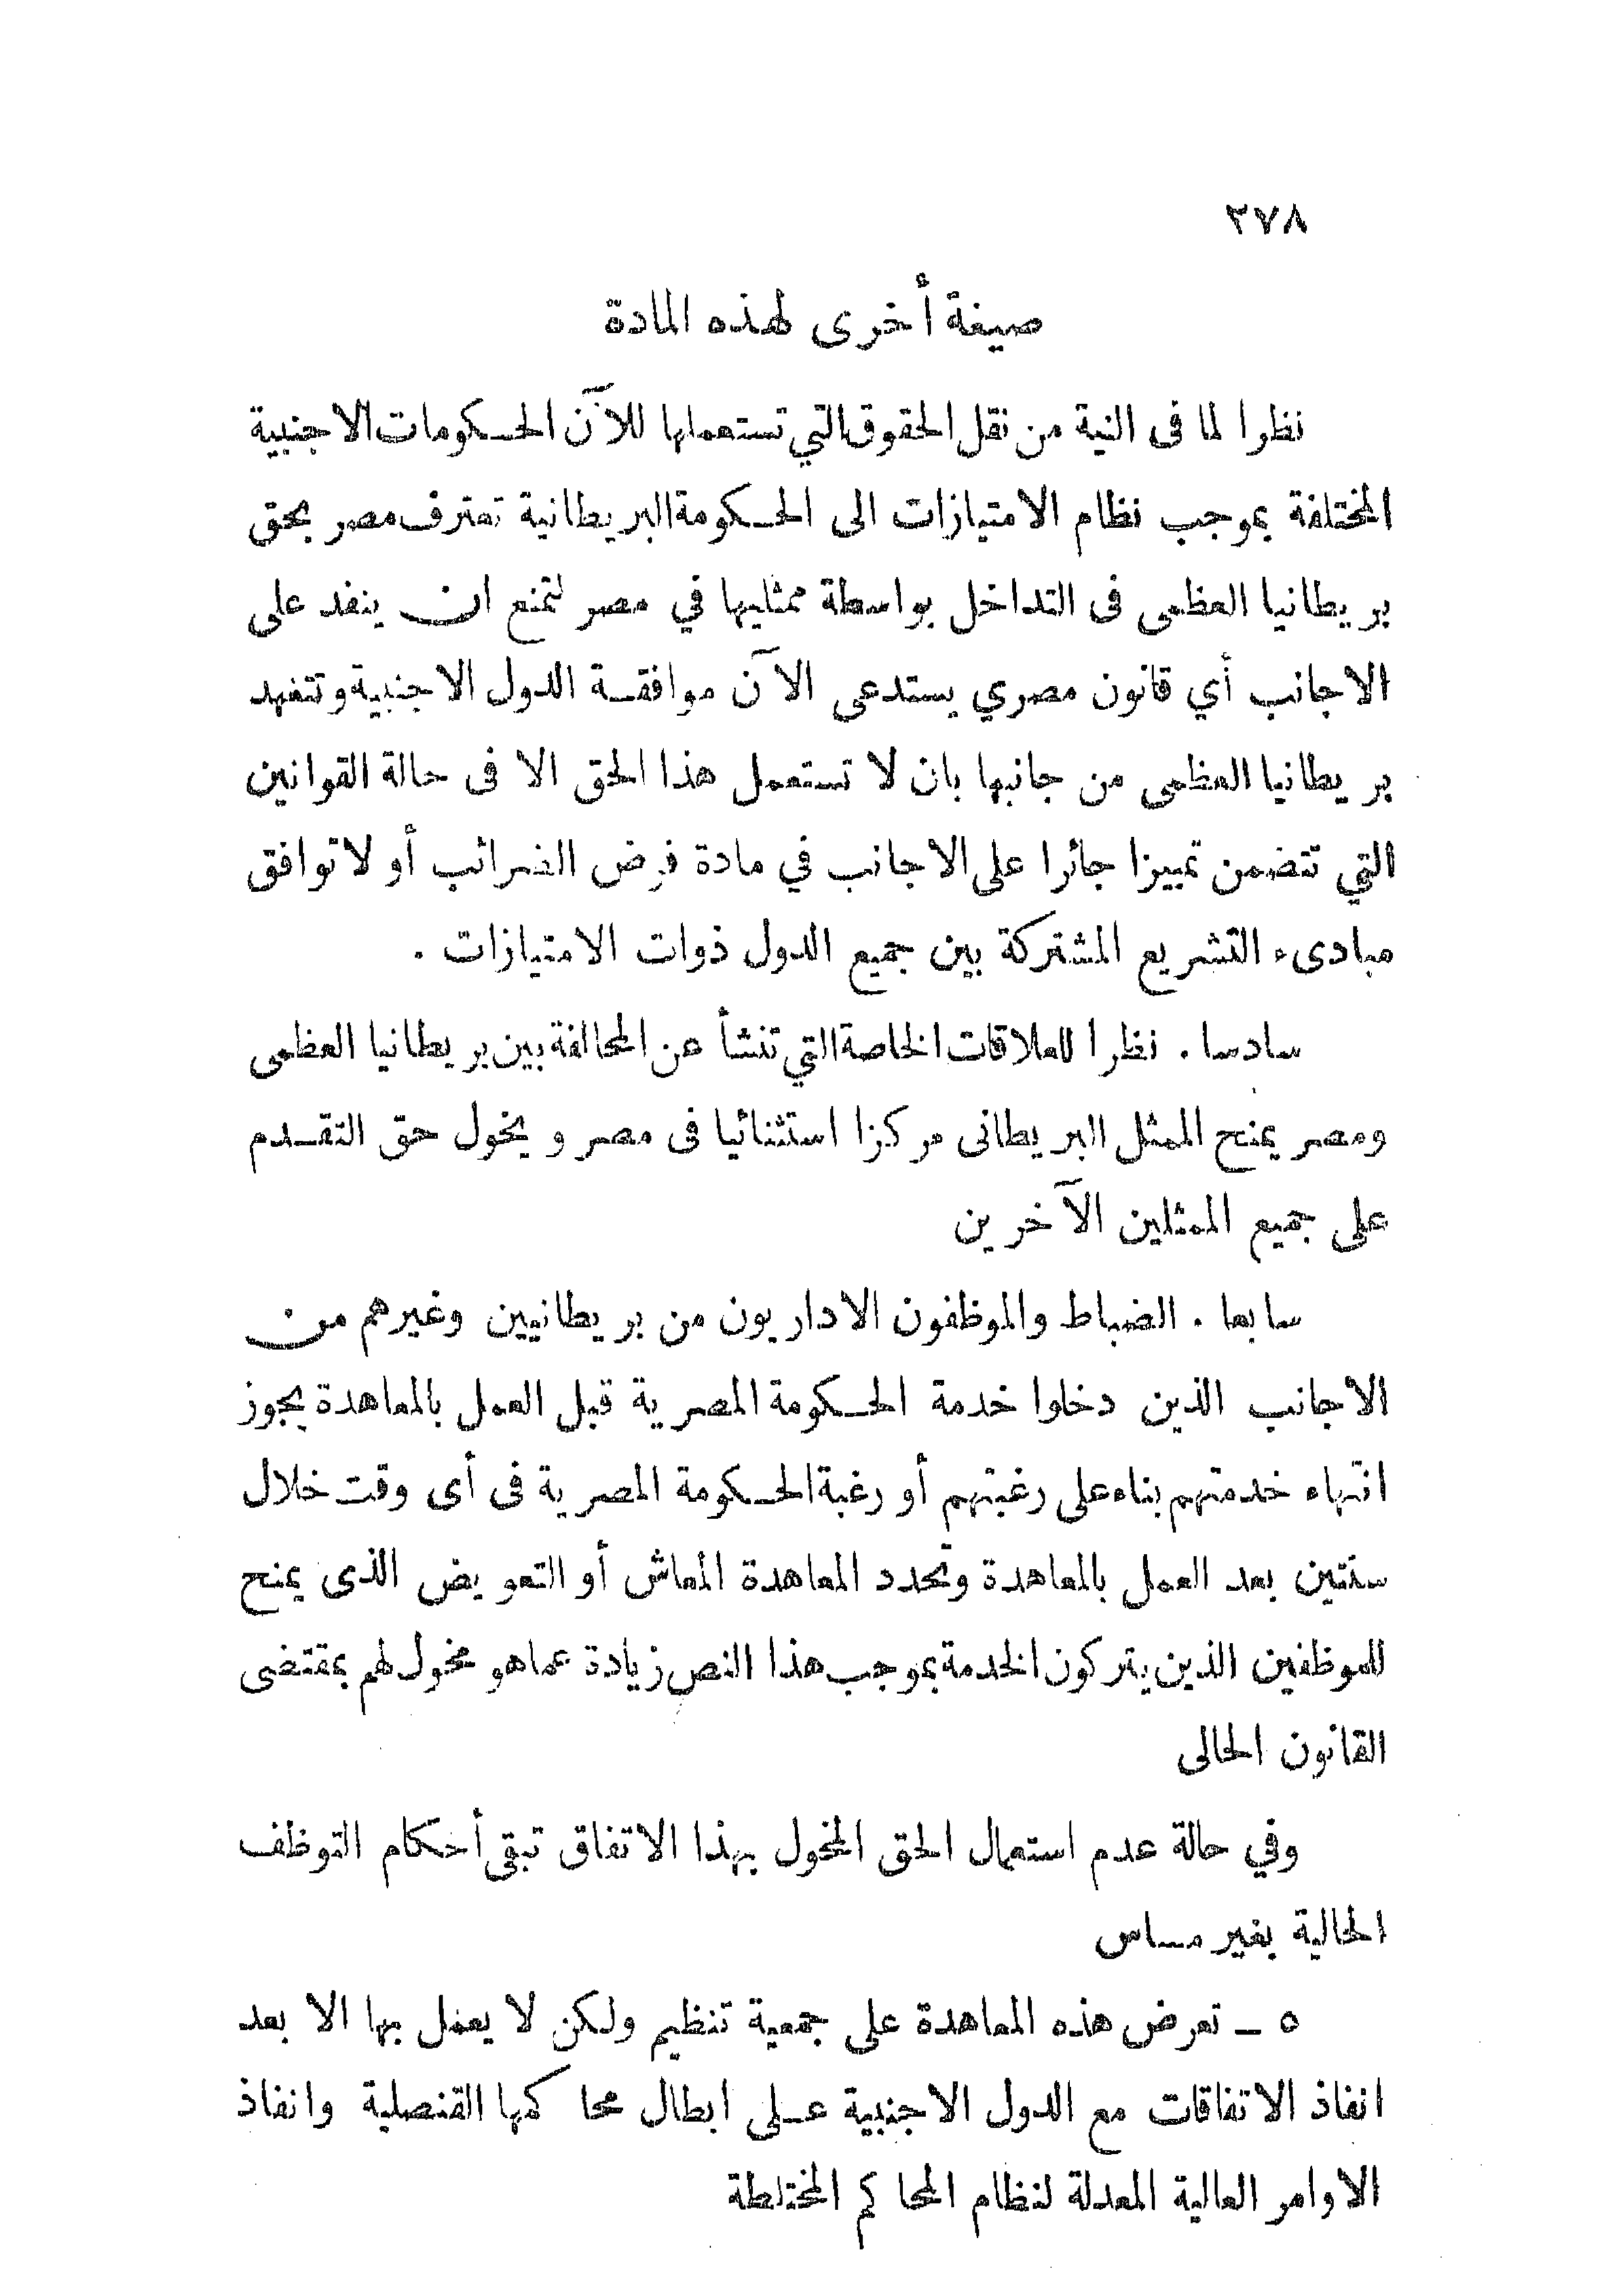 ٢٧٨
صيغة أخرى لهذه المادة
نظرا لما فى النية من نقل الحقوق التي تستعملها للآن الحكومات الاجنبية
المختلفة بموجب نظام الامتيازات الى الحكومة البريطانية تعترف مصر بحق
بريطانيا العظمى فى التداخل بواسطة ممثليها في مصر لتمنع ان ينفد على
الاجانب أي قانون مصري يستدعى الآن موافقة الدول الاجنبية وتتعهد
بريطانيا العظمى من جانبها بان لا تستعمل هذا الحق الا فى حالة القوانين
التي تتضمن تمييزا جائرا على الاجانب في مادة فرض الضرائب أو لا توافق
مبادىء التشريع المشتركة بين جميع الدول ذوات الامتيازات .
سادسا . نظرا للعلاقات الخاصة التي تنشأ عن المحالفة بين بريطانيا العظمى
ومصر يمنح الممثل البريطانى مركزا استثنائيا فى مصر ويخول حق التقدم
على جميع الممثلين الآخرين
سابعا . الضباط والموظفون الاداريون من بريطانيين وغيرهم من
الاجانب الذين دخلوا خدمة الحكومة المصرية قبل العمل بالمعاهدة يجوز
انتهاء خدمتهم بناء على رغبتهم أو رغبة الحكومة المصرية فى أى وقت خلال
سنتين بعد العمل بالمعاهدة وتحدد المعاهدة المعاش أو التعويض الذى يمنح
للموظفين الذين يتركون الخدمة بموجب هذا النص زيادة عما هو مخول لهم بمقتضى
القانون الحالى
وفي حالة عدم استعمال الحق المخول بهذا الاتفاق تبقى أحكام التوظف
الحالية بغير مساس
٥ – تعرض هذه المعاهدة على جمعية تنظيم ولكن لا يعمل بها الا بعد
انفاذ الاتفاقات مع الدول الاجنبية على ابطال محاكمها القنصلية وانفاذ
الاوامر العالية المعدلة لنظام المحاكم المختلطة